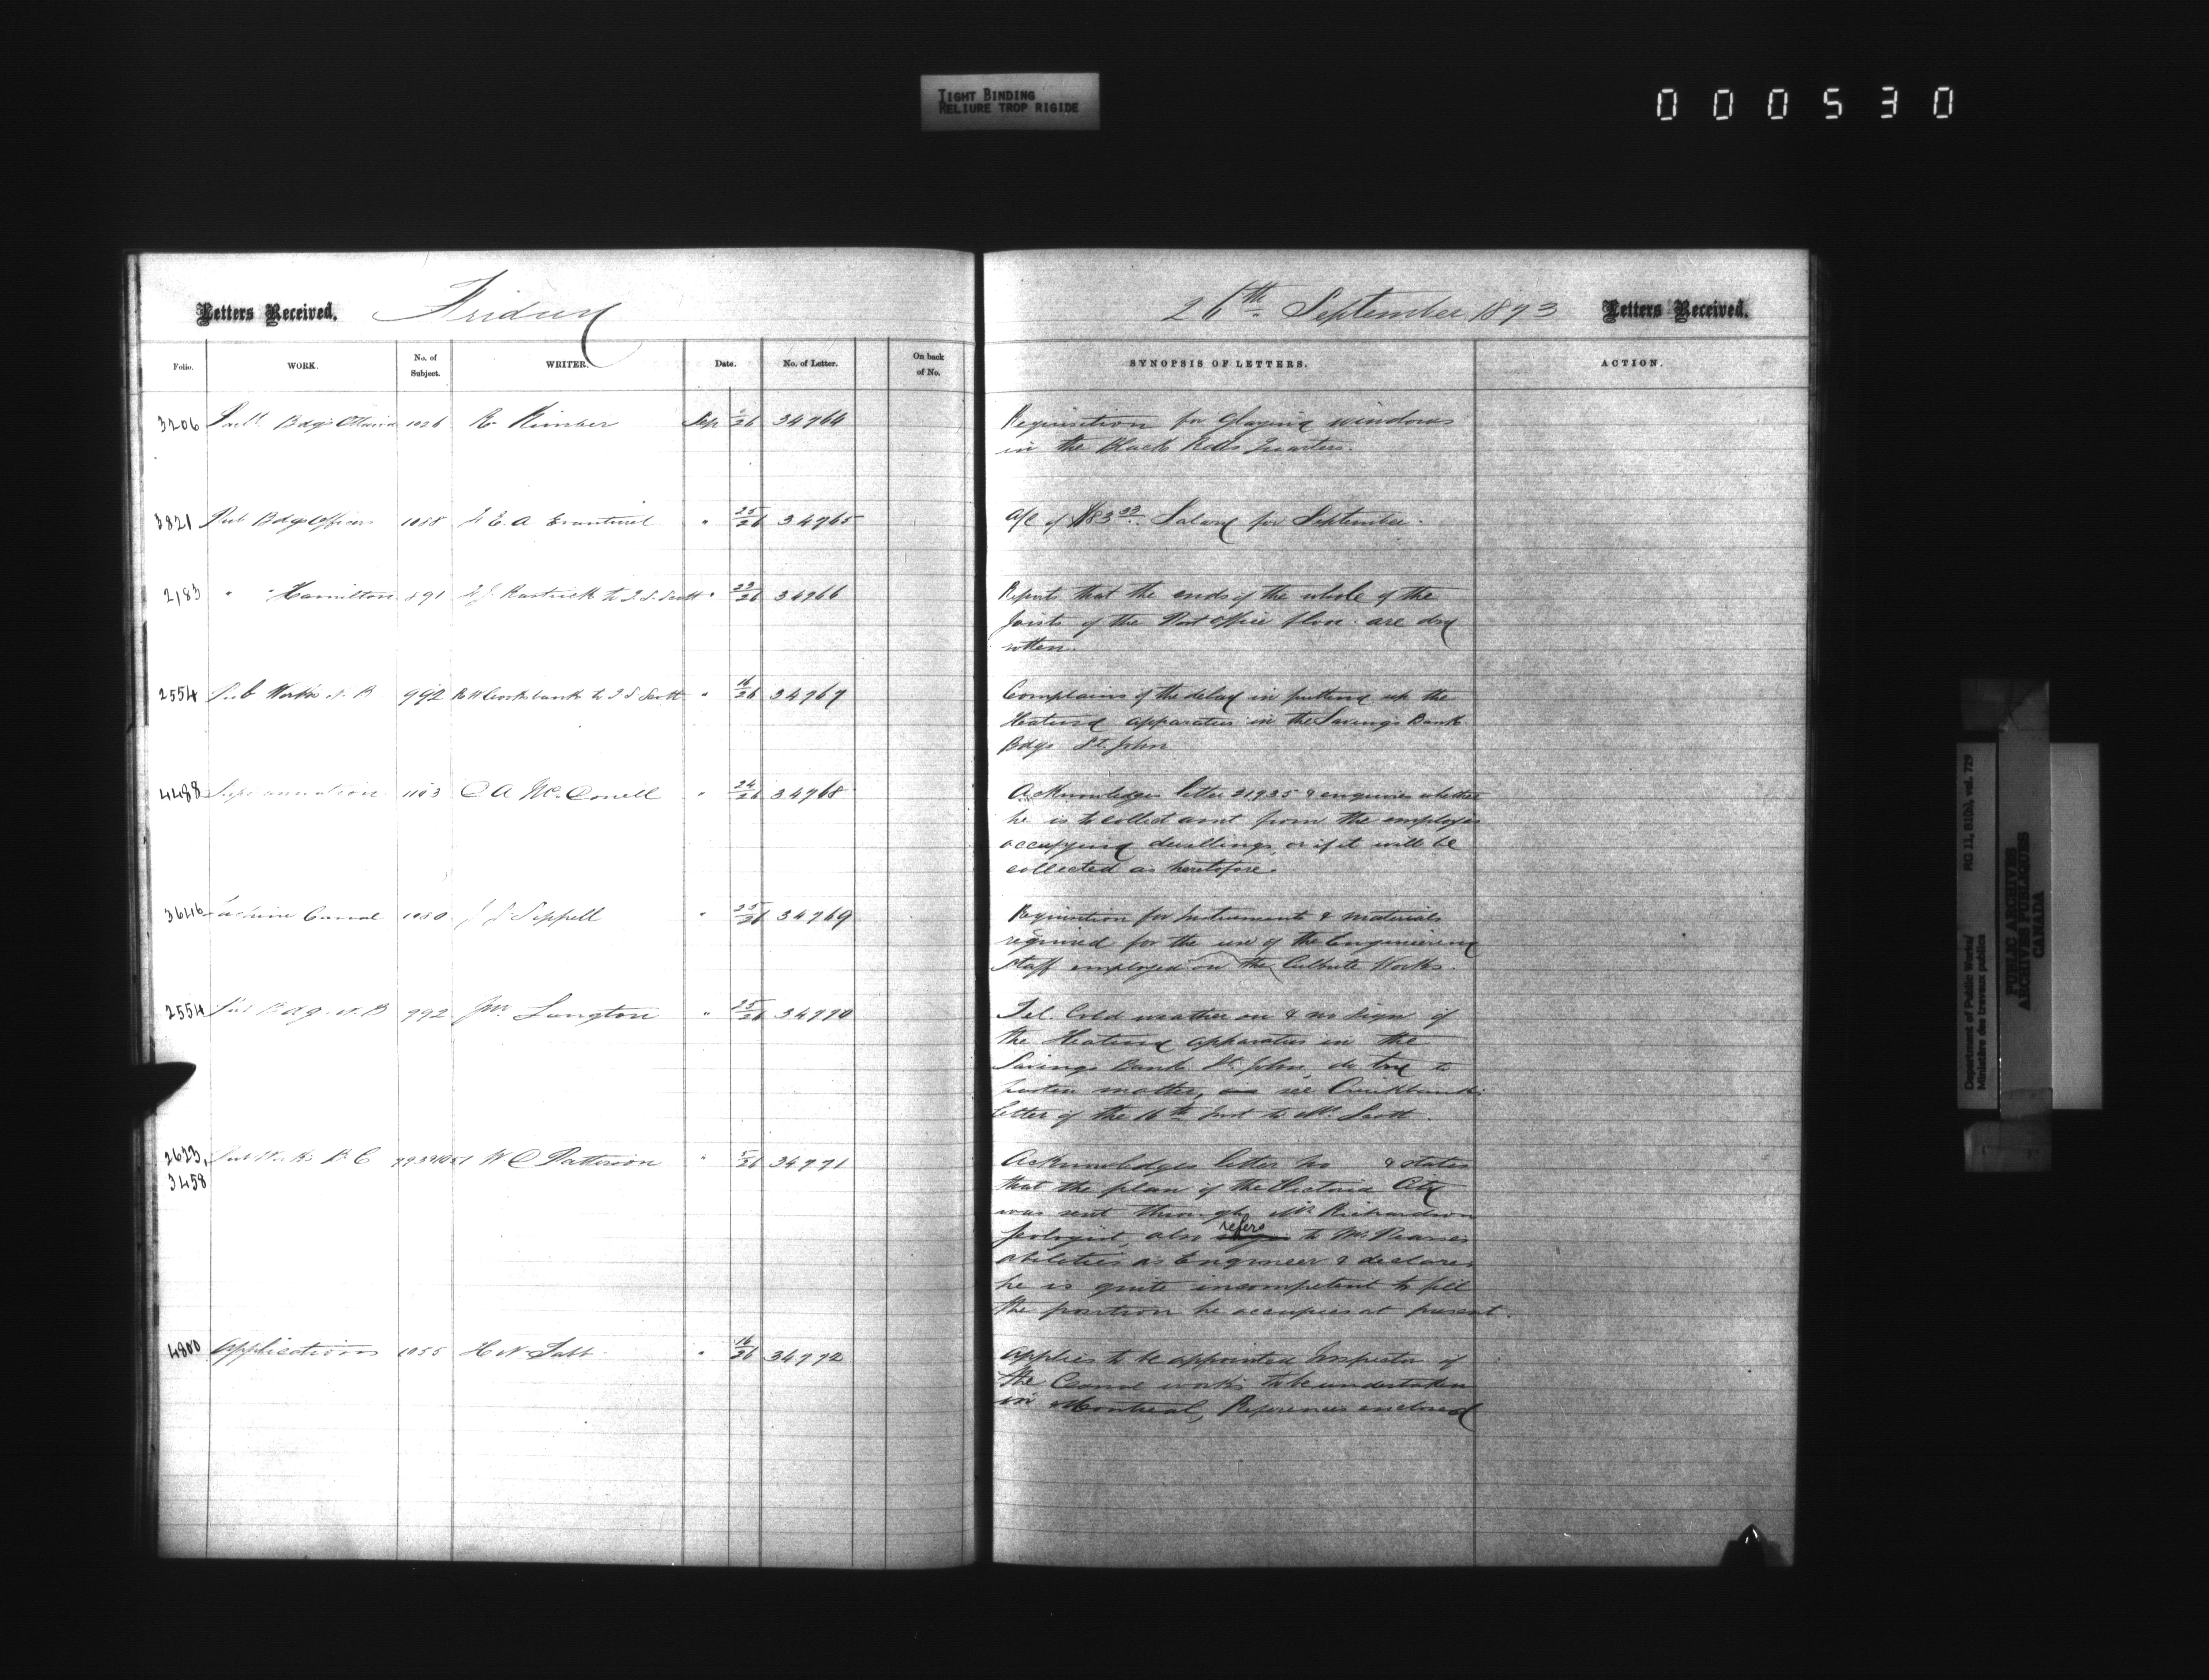 TIGHT BINDING
RELIURE TROP RIGIDE
000530
Letters Received. Friday
26th September 1873 Letters Received.
Folio. WORK. No. of Subject. WRITER. Date. No. of Letter. On back of No.
SYNOPSIS OF LETTERS. ACTION.
3206 Parlt. Bdgs Ottawa 1026 R Kimber Sep /26 34764
Requisition for glazing windows
in the Black Rods Quarters.
3821 Pub Bdgs Officers 1058 E. A 25/26 34765
a/c of $83 33 Salary for September.
2183 " " Hamilton 891 Rastrick to T. S. Scott " 23/26 34766
Report that the ends of the whole of the
Joists of the Post Office floor are dry
rotten.
2554 Pub Works N. B 992 R W Crookshank to T S Scott " 16/26 34767
Complains of the delay in putting up the
Heating apparatus in the Savings Bank
Bdgs St. John
4488 Superannuation 1103 C A McConell " 24/26 34768
Acknowledges letter 21935 & enquiries whether
he is to collect amt from the employes
occupying dwellings, or if it will be
collected as heretofore.
3646 Lachine Canal 1080 J G Sippell " 25/26 34769
Requisition for Instruments & materials
required for the use of the Engineering
staff employed on the Culbute Works.
2554 Pub Bdgs N. B 992 Jno. Langton " 25/26 34770
Tel. Cold weather on & no sign of
the Heating apparatus in the
Savings Bank St. John, do try to
hasten matter, see Cruikshank
letter of the 16th Inst to Mr. Scott.
2623, Pub Works B. C W C Patterson " /26 34771
3458
Acknowledges letter no & states
that the plan of the Victoria City
was sent through Mr Richardson
Geologist, also refers to Mr Pearse's
abilities as Engineer & declares
he is quite incompetent to fill
the position he occupies at present.
4800 Applications 1055 H N Tabb " 16/26 34772
Applies to be appointed Inspector of
the Canal works to be undertaken
in Montreal, References enclosed
Department of Public Works/ RG 11, B1(b), vol. 729
Ministère des travaux publics
PUBLIC ARCHIVES
ARCHIVES PUBLIQUES
CANADA